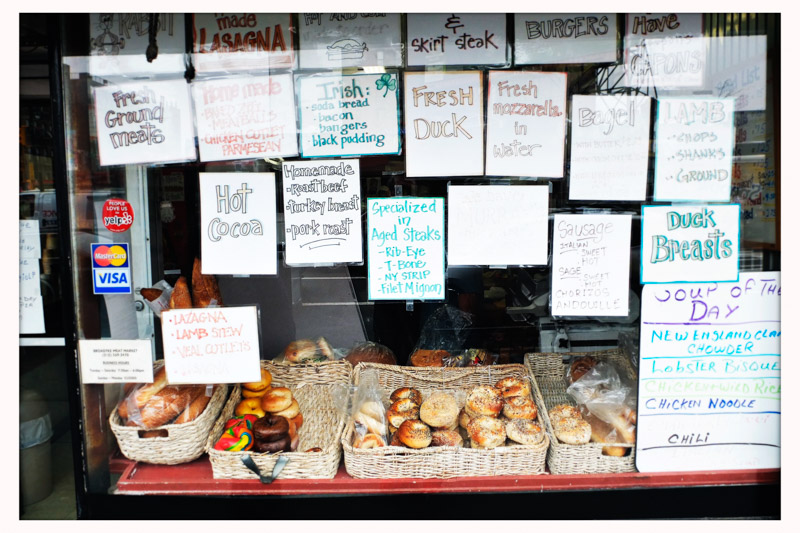 RABBIT
made
LASAGNA
HOT AND COLD
&
skirt steak
BURGERS
Have
CAPONS
Fresh
Ground
meats
Home made
CHICKEN CUTLET
PARMESEAN
Irish:
• soda bread
• bacon
bangers
• black pudding
FRESH
DUCK
Fresh
mozzarella
in
water
Bagel
LAMB
• CHOPS
• SHANKS
• GROUND
Hot
Cocoa
Homemade
- Roast beef
- turkey breast
- pork roast
Specialized
in
Aged Steaks
- Rib-Eye
- T-Bone
- NY STRIP
- Filet Mignon
Sausage
ITALIAN
SWEET
HOT
SAGE
SWEET
HOT
CHORITOS
ANDOUILLE
Duck
Breasts
PEOPLE
LOVE US
yelp
MasterCard
VISA
• LAZAGNA
• LAMB STEW
• VEAL CUTLETS
SOUP OF THE
DAY
NEW ENGLAND CLAM
CHOWDER
LOBSTER BISQUE
CHICKEN + WILD RICE
CHICKEN NOODLE
CHILI